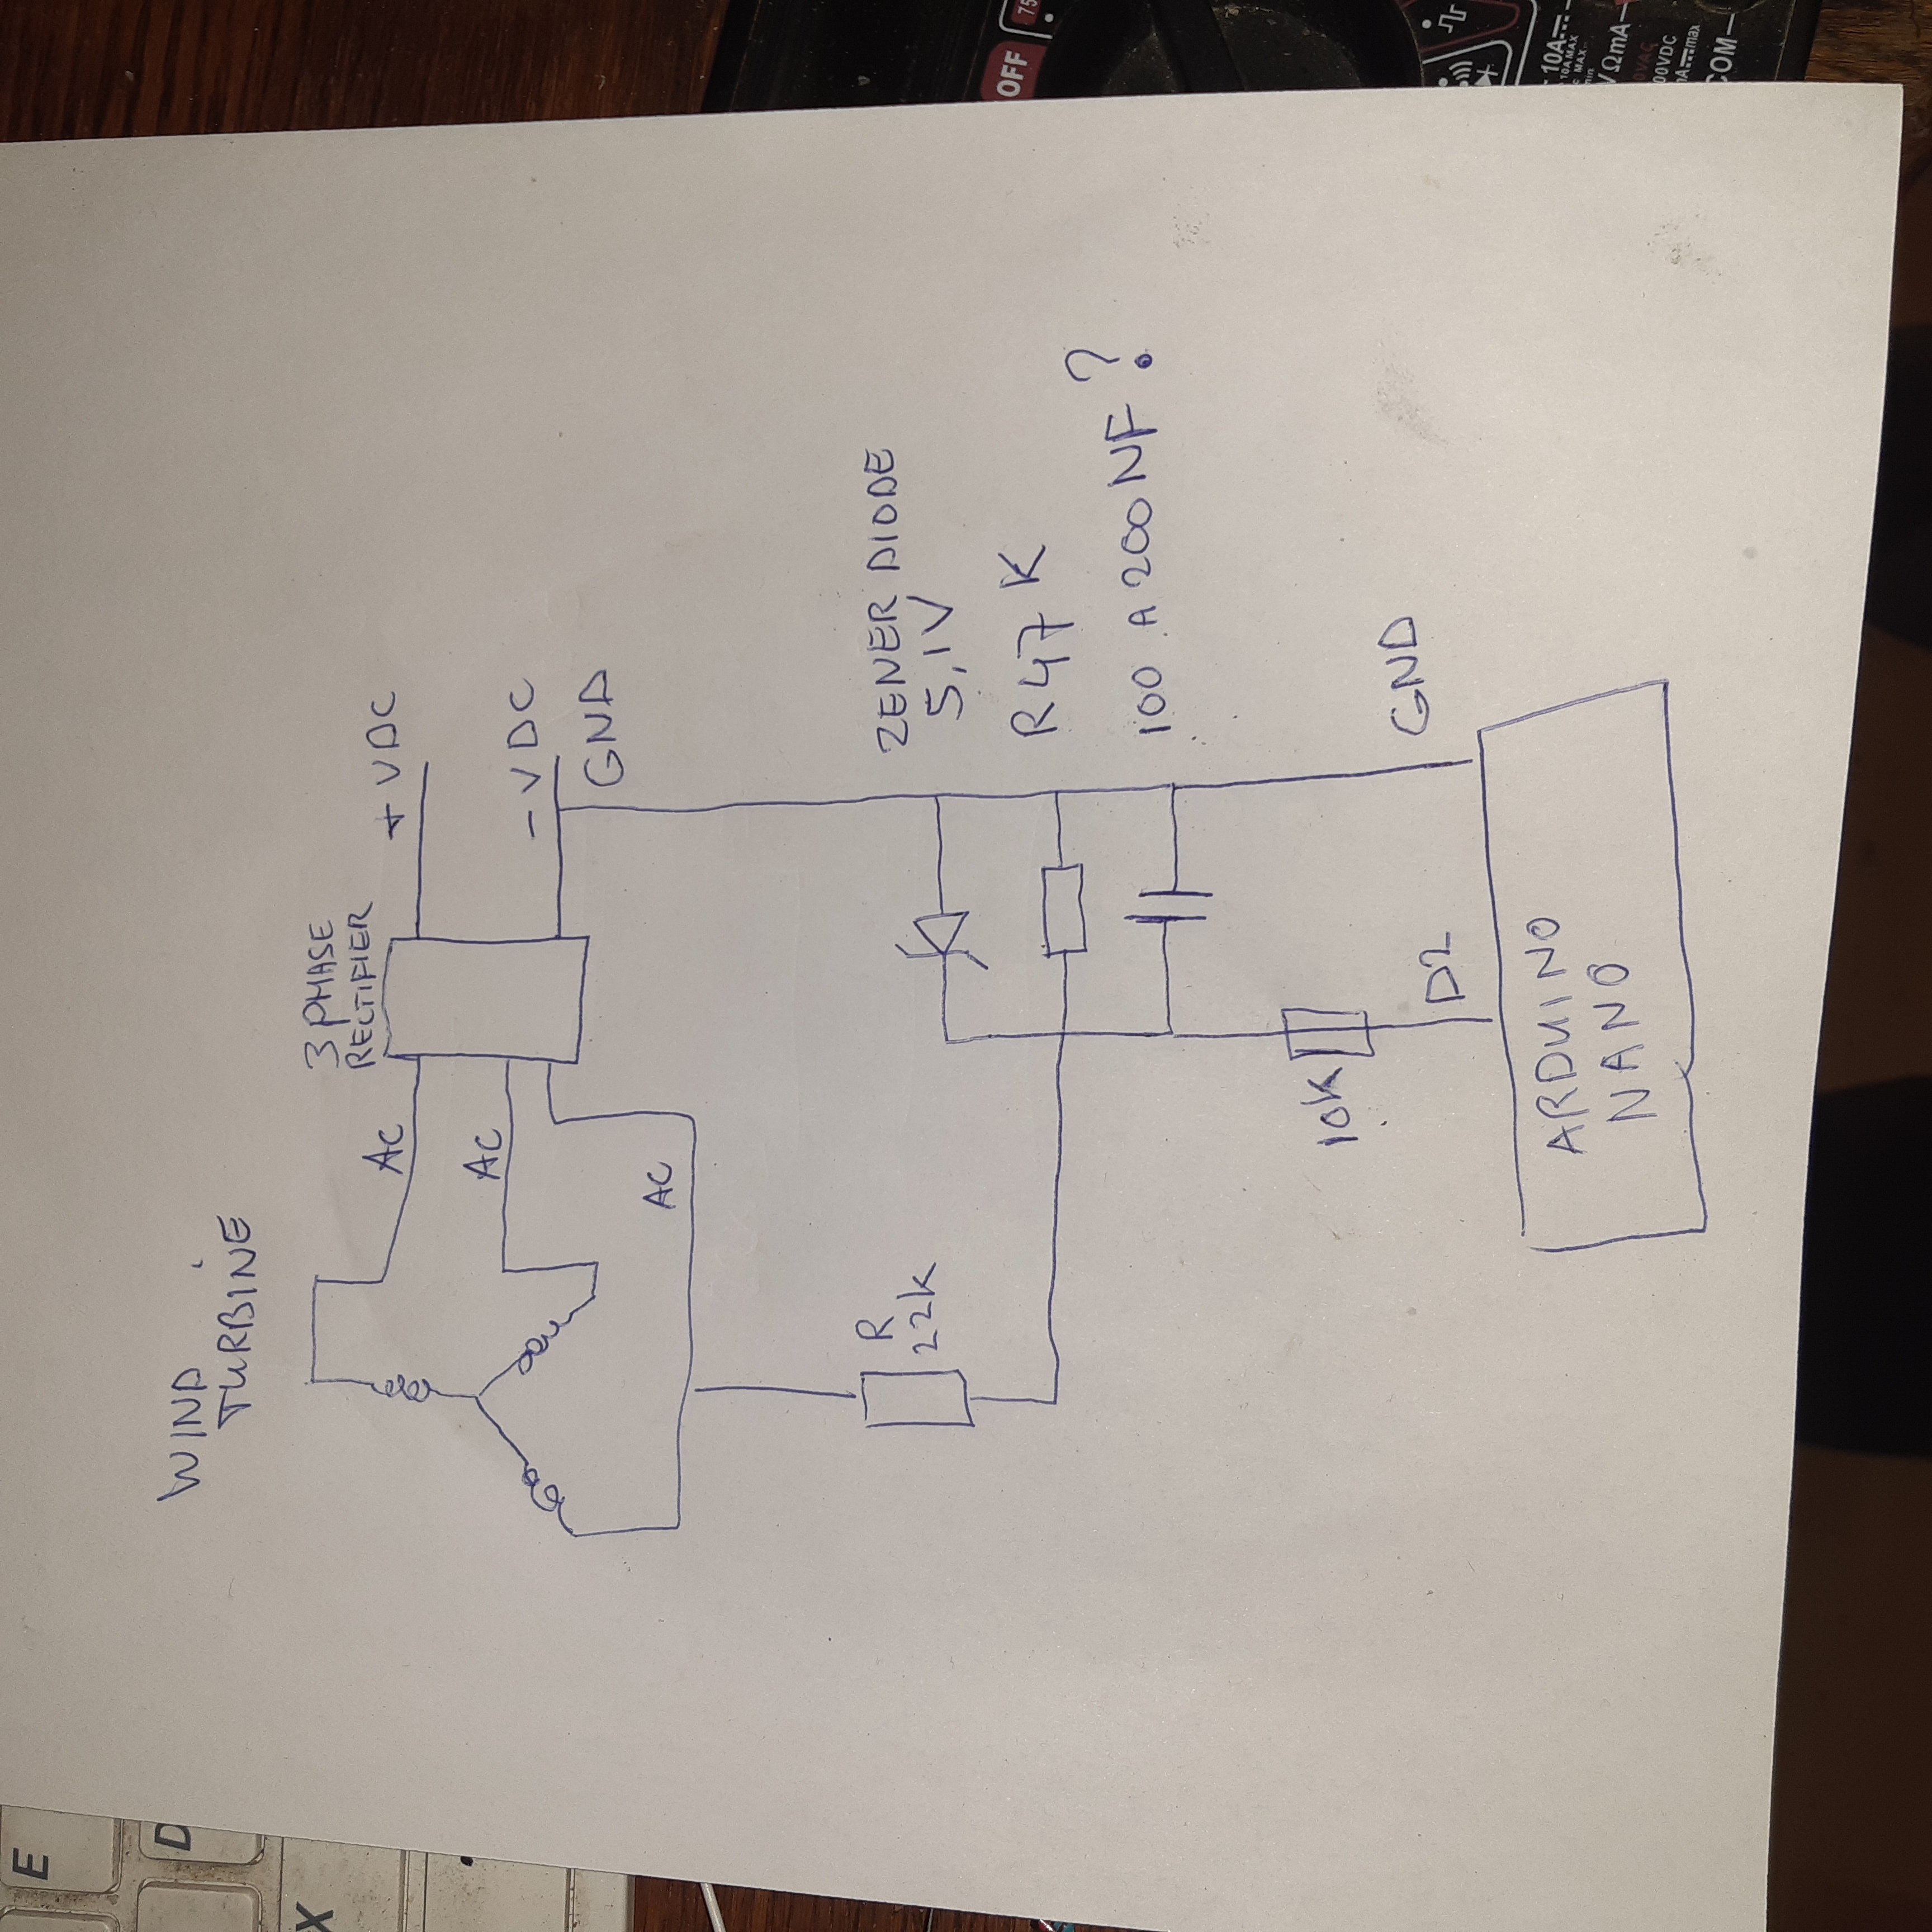 E
D
X
WIND
TURBINE
3 PHASE
RECTIFIER
AC
+ VDC
AC
- VDC
GND
AC
R
22K
ZENER DIODE
5,1V
R47K
100 A 200 NF ?
10K
D2
GND
ARDUINO
NANO
OFF
75
10A
10A MAX
MAX
VΩmA
00VDC
mA max
COM